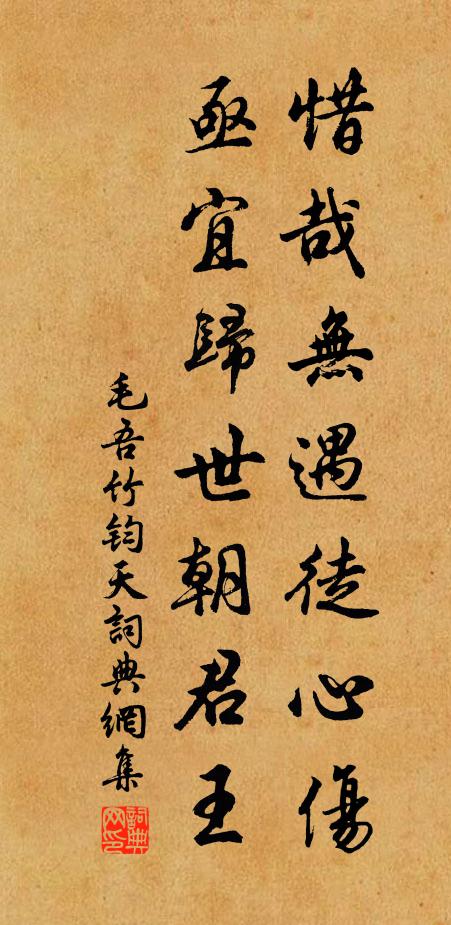 惜哉無遇徒心傷
亟宜歸世朝君王
毛吾竹鈞天詞典網集
詞典
网印